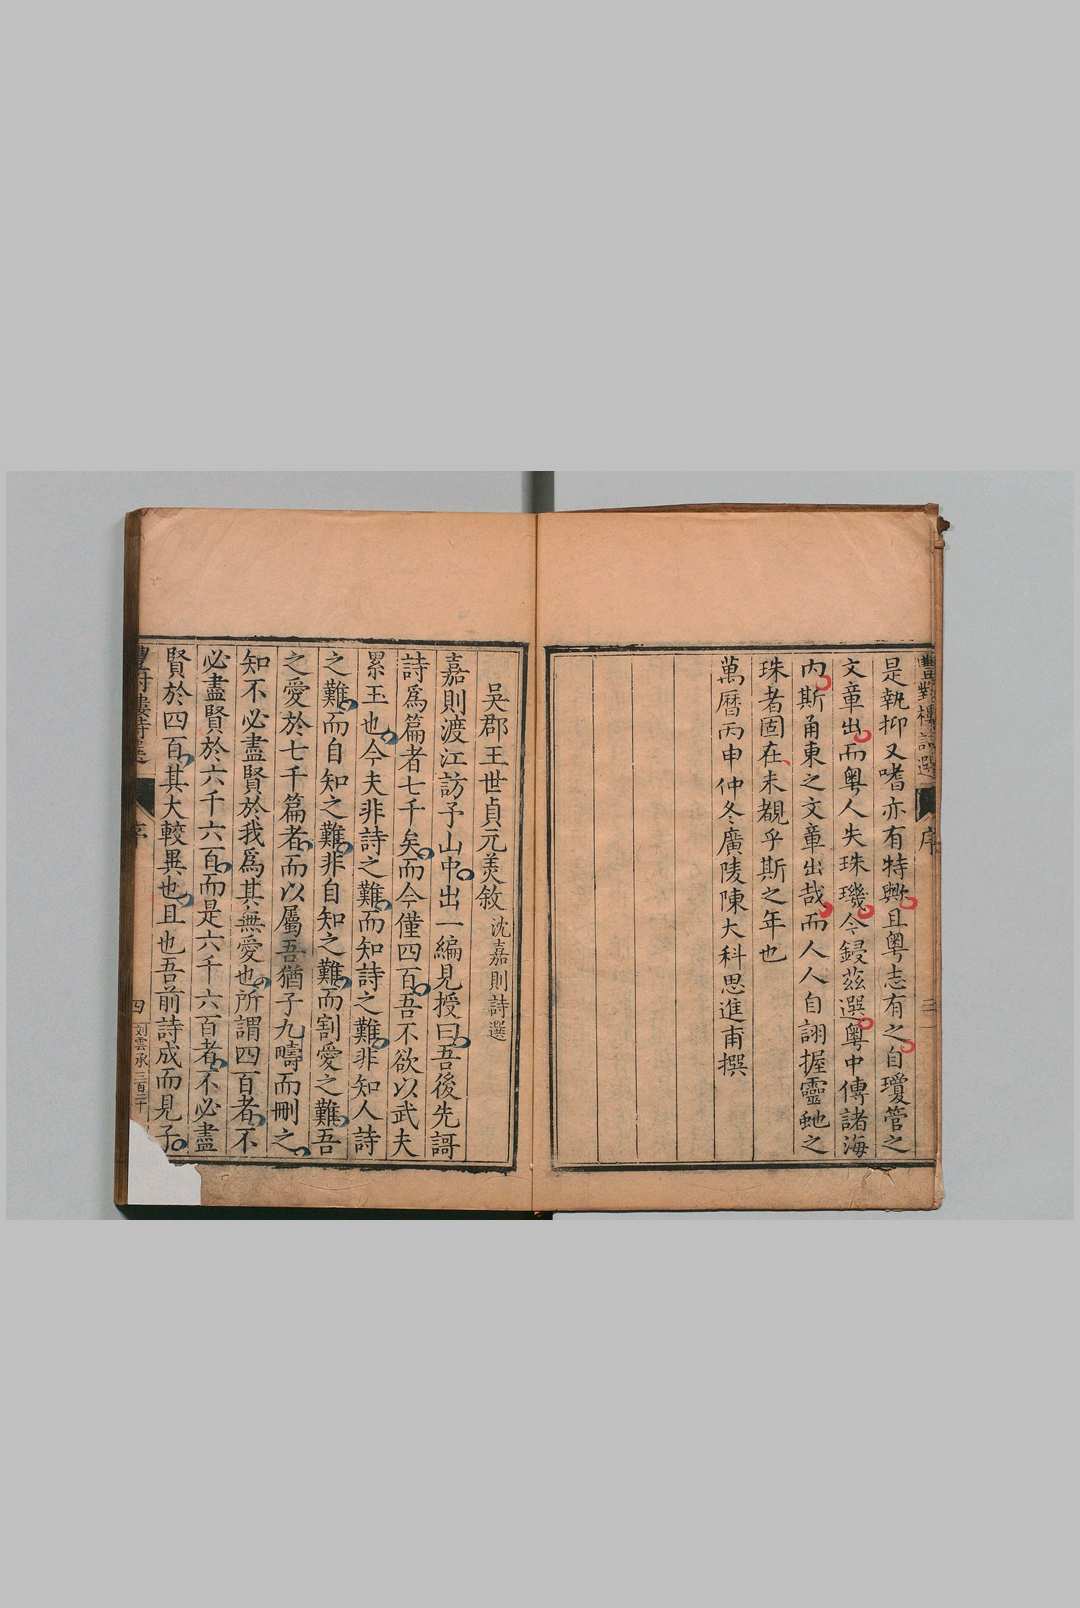 豐對樓詩選
序
三
是執抑又嗜亦有特歟且粵志有之自瓊管之
文章出而粵人失珠璣今鋟茲選粵中傳諸海
內斯甬東之文章出哉而人人自詡握靈虵之
珠者固在未覩乎斯之年也
萬曆丙申仲冬廣陵陳大科思進甫撰
吳郡王世貞元美敘 沈嘉則詩選
嘉則渡江訪予山中出一編見授曰吾後先謌
詩爲篇者七千矣而今僅四百吾不欲以武夫
累玉也今夫非詩之難而知詩之難非知人詩
之難而自知之難非自知之難而割愛之難吾
之愛於七千篇者而以屬吾猶子九疇而刪之
知不必盡賢於我爲其無愛也所謂四百者不
必盡賢於六千六百而是六千六百者不必盡
賢於四百其大較異也且也吾前詩成而見子
豐對樓詩選
序
四
刘雲承 三百二十